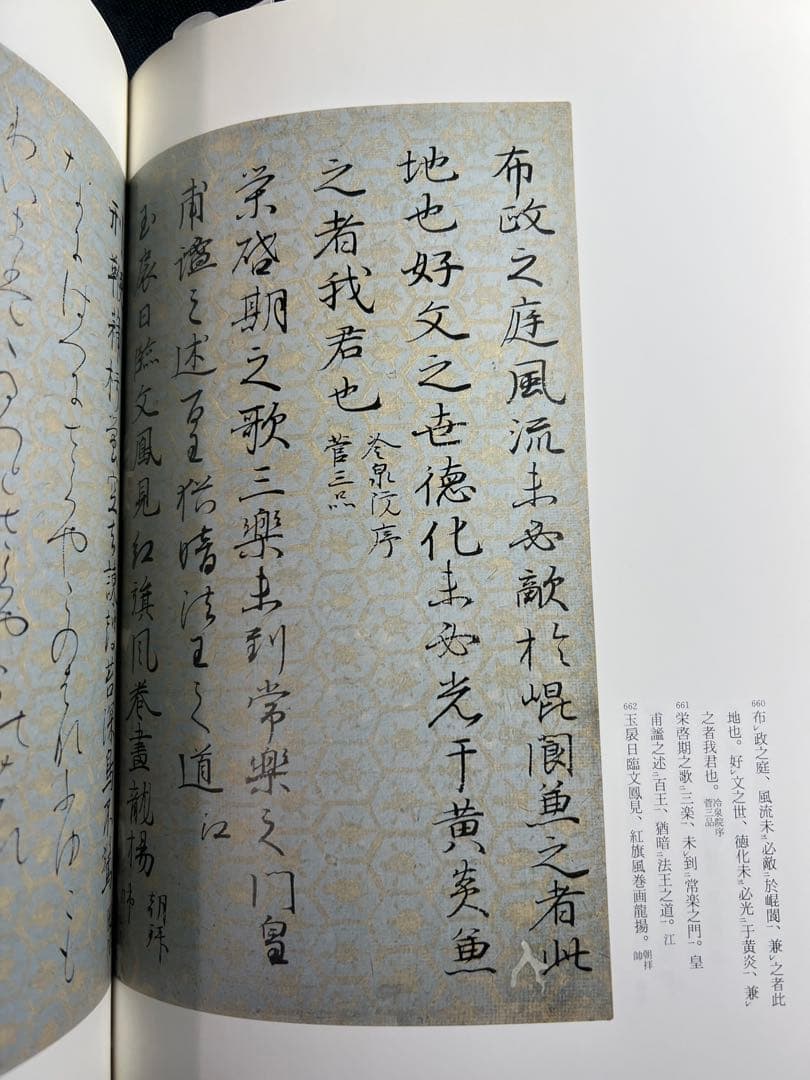 660
布レ政之庭、風流未三必敵二於崐閬一、兼レ之者此
地也。好レ文之世、徳化未三必光二于黄炎一、兼レ
之者我君也。冷泉院序
菅三品
661
栄啓期之歌二三楽一、未レ到二常楽之門一。皇
甫謐之述二百王一、猶暗二法王之道一。江
662
玉扆日臨文鳳見、紅旗風巻画龍揚。朝拝
帥
布政之庭風流未必敵於崐閬兼之者此
地也好文之世徳化未必光于黄炎兼
之者我君也
冷泉院序
菅三品
栄啓期之歌三樂未到常樂之門皇
甫謐之述百王猶暗法王之道江
玉扆日臨文鳳見紅旗風巻畫龍揚
朝拝
帥
なにはつにさくやこのはなふゆこも